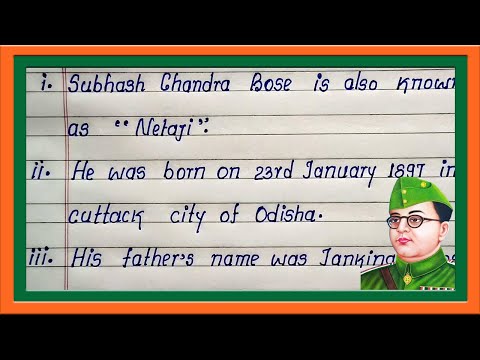 i. Subhash Chandra Bose is also known
as "Netaji".
ii. He was born on 23rd January 1897 in
cuttack city of Odisha.
iii. His father's name was